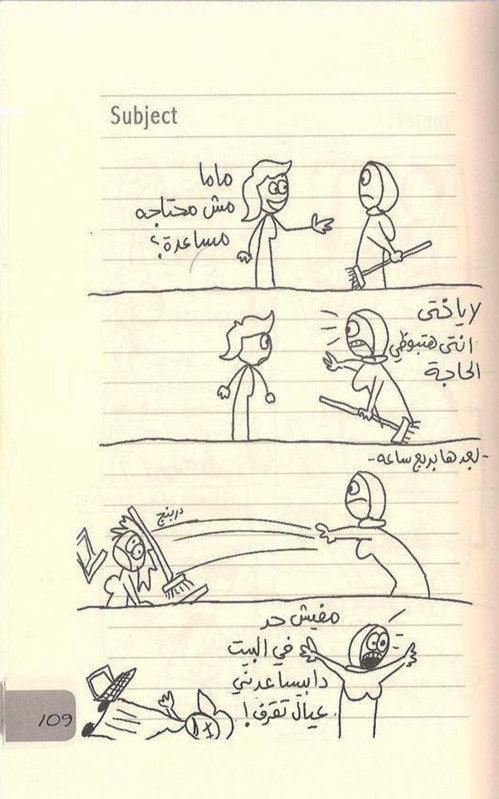 Subject
ماما
مش محتاجه
مساعدة؟
لا ياختى
انتى هتبوظي
الحاجة
-بعدها بربع ساعه-
دربنج
مفيش حد
في البيت
دا بيساعدني
عيال تقرف!
109